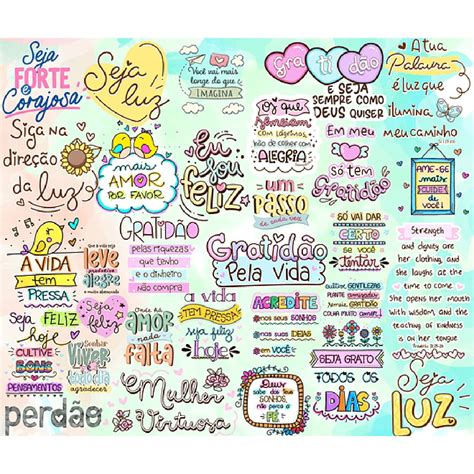 Seja
FORTE
e
Corajosa
Seja
luz
Você vai mais
longe do que
IMAGINA
GRATIDÃO
E SEJA
SEMPRE COMO
DEUS QUISER
A tua
Palavra
é luz que
ilumina
meu caminho
Siga na
direção
da luz
mais
AMOR
POR FAVOR
Eu
Sou
feliz
O que
com lágrimas,
hão de colher com
ALEGRIA
Em meu
Só tem
Gratidão
AME-SE
mais
CUIDE
de você!
um
PASSO
de cada vez
A VIDA
TEM
PRESSA
que a vida
seja
leve
alegre
GRATIDÃO
pelas riquezas
que tenho
e o dinheiro
não compra
Gratidão
Pela vida
SÓ VAI DAR
CERTO
cultivar GENTILEZAS
PLANTE
COLHA MUITO AMOR
Strength
and dignity are
her clothing, and
she laughs at the
time to come
She opens her mouth
with wisdom, and the
teaching of kindness
is on her tongue
Proverbs 31:25-26
Seja FELIZ
hoje
Seja
feliz
Onde há
AMOR
nada
falta
a vida
TEM PRESSA
seja feliz
hoje
ACREDITE
nos seus SONHOS
nas suas IDEIAS
em VOCÊ!
SEJA GRATO
TODOS OS
DIAS
CULTIVE
BONS
PENSAMENTOS
VIVER
agradecer
Mulher
Virtuosa
Deus
sabe dos
Seus
SONHOS,
não perca
a FÉ
Seja
LUZ
perdão